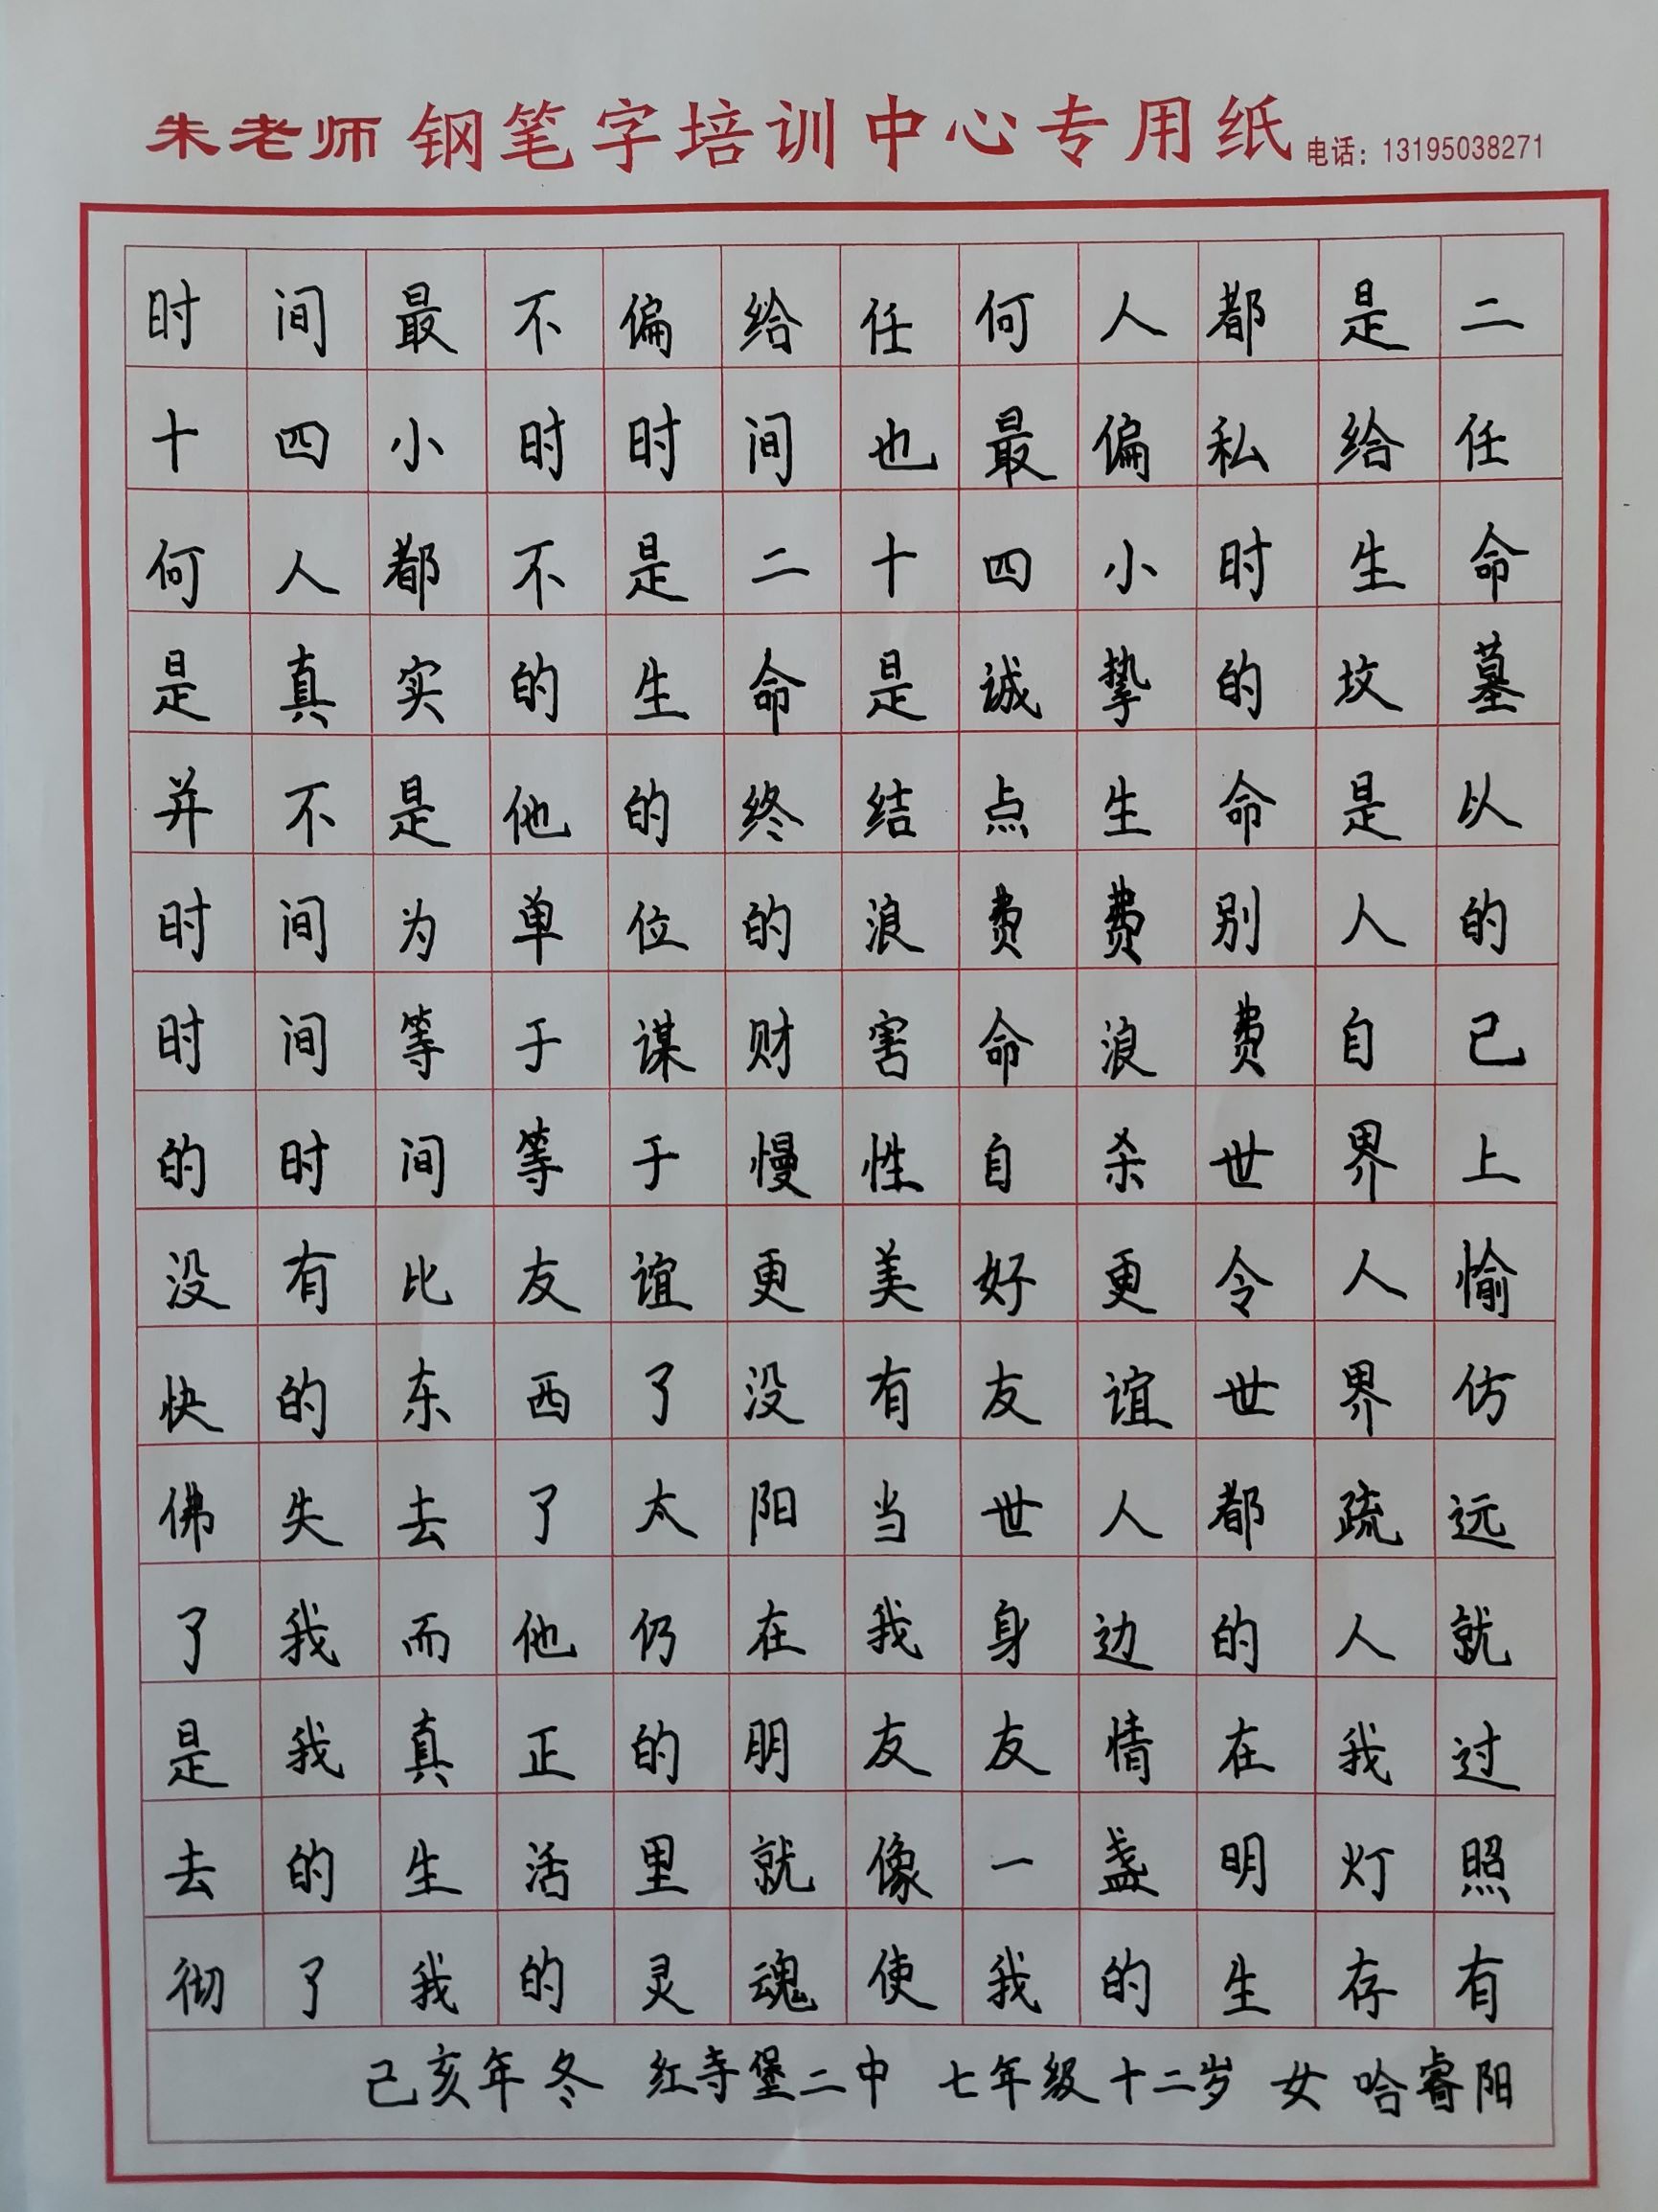 朱老师 钢笔字培训中心专用纸 电话：13195038271
时间最不偏给任何人都是二
十四小时时间也最偏私给任
何人都不是二十四小时生命
是真实的生命是诚挚的坟墓
并不是他的终结点生命是以
时间为单位的浪费费别人的
时间等于谋财害命浪费自己
的时间等于慢性自杀世界上
没有比友谊更美好更令人愉
快的东西了没有友谊世界仿
佛失去了太阳当世人都疏远
了我而他仍在我身边的人就
是我真正的朋友友情在我过
去的生活里就像一盏明灯照
彻了我的灵魂使我的生存有
己亥年冬 红寺堡二中 七年级十二岁 女 哈睿阳